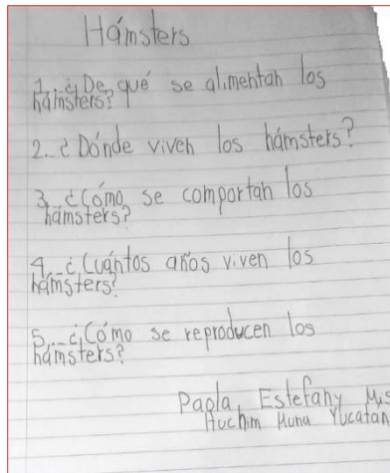 Hámsters
1.-¿De qué se alimentan los
hámsters?
2.-¿Dónde viven los hámsters?
3.-¿Cómo se comportan los
hámsters?
4.-¿Cuántos años viven los
hámsters?
5.-¿Cómo se reproducen los
hámsters?
Paola Estefany
Huchim Muna Yucatan